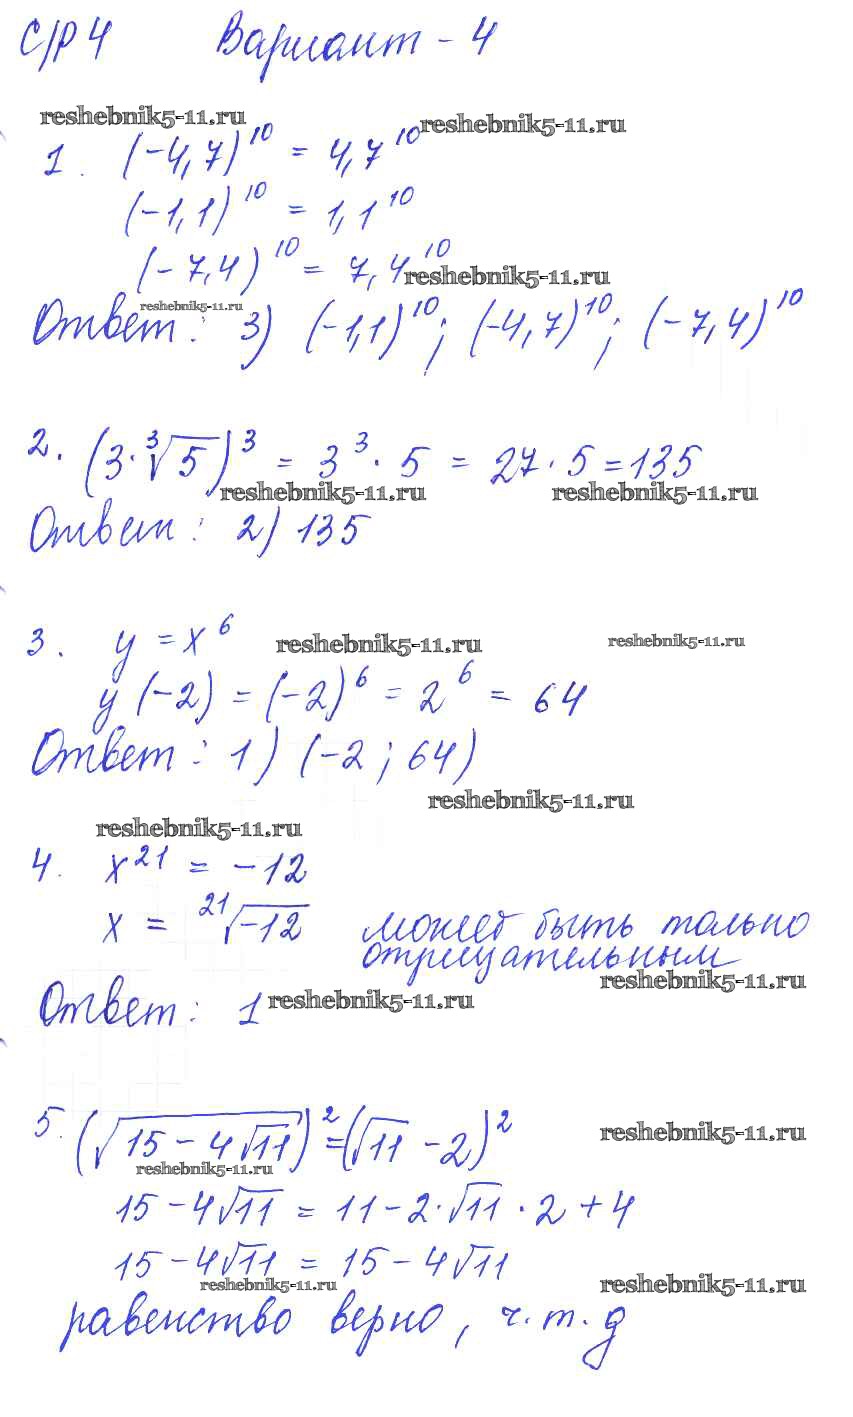 С/Р 4 Вариант - 4
reshebnik5-11.ru reshebnik5-11.ru
1. (-4,7)^10 = 4,7^10
(-1,1)^10 = 1,1^10
(-7,4)^10 = 7,4^10
reshebnik5-11.ru
reshebnik5-11.ru
Ответ: 3) (-1,1)^10; (-4,7)^10; (-7,4)^10
2. (3·∛5)^3 = 3^3 · 5 = 27 · 5 = 135
reshebnik5-11.ru reshebnik5-11.ru
Ответ: 2) 135
3. y = x^6
reshebnik5-11.ru reshebnik5-11.ru
y(-2) = (-2)^6 = 2^6 = 64
Ответ: 1) (-2; 64)
reshebnik5-11.ru
reshebnik5-11.ru
4. x^21 = -12
x = ^21√-12 может быть только
отрицательным
reshebnik5-11.ru
Ответ: 1
reshebnik5-11.ru
5. (√(15 - 4√11))^2 = (√11 - 2)^2
reshebnik5-11.ru
reshebnik5-11.ru
15 - 4√11 = 11 - 2·√11 · 2 + 4
15 - 4√11 = 15 - 4√11
reshebnik5-11.ru reshebnik5-11.ru
равенство верно, ч.т.д